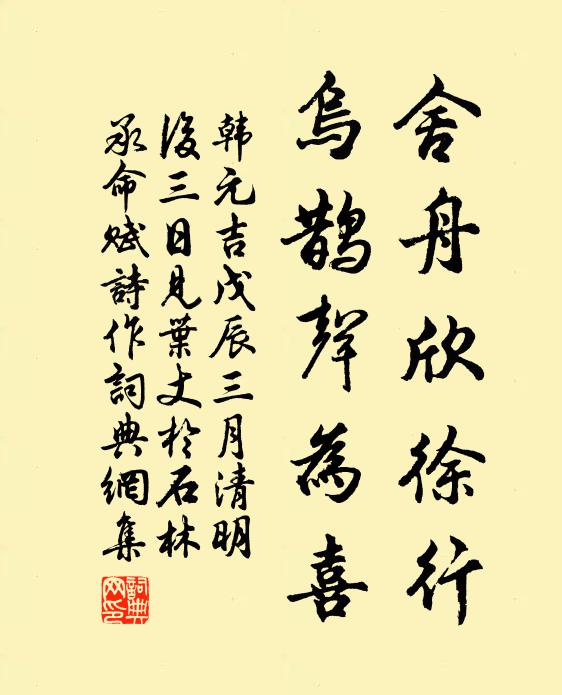 舍舟欣徐行
烏鵲聲為喜
韓元吉戊辰三月清明
後三日見葉丈於石林
承命賦詩作詞典網集
詞典網印